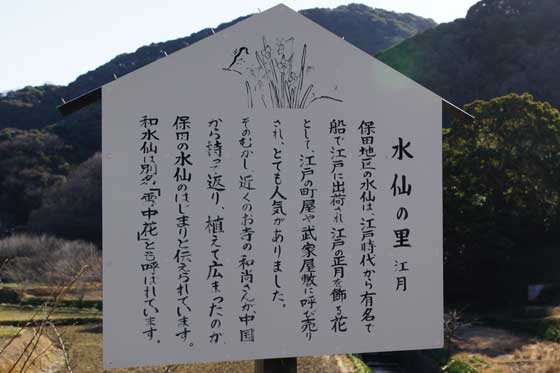 水仙の里 江月
保田地区の水仙は、江戸時代から有名で
船で江戸に出荷され、江戸の正月を飾る花
として、江戸の町屋や武家屋敷に呼び売り
され、とても人気がありました。
そのむかし、近くのお寺の和尚さんが中国
から持って返り、植えて広まったのが、
保田の水仙のはじまりと伝えられています。
和水仙は別名「雪中花」とも呼ばれています。